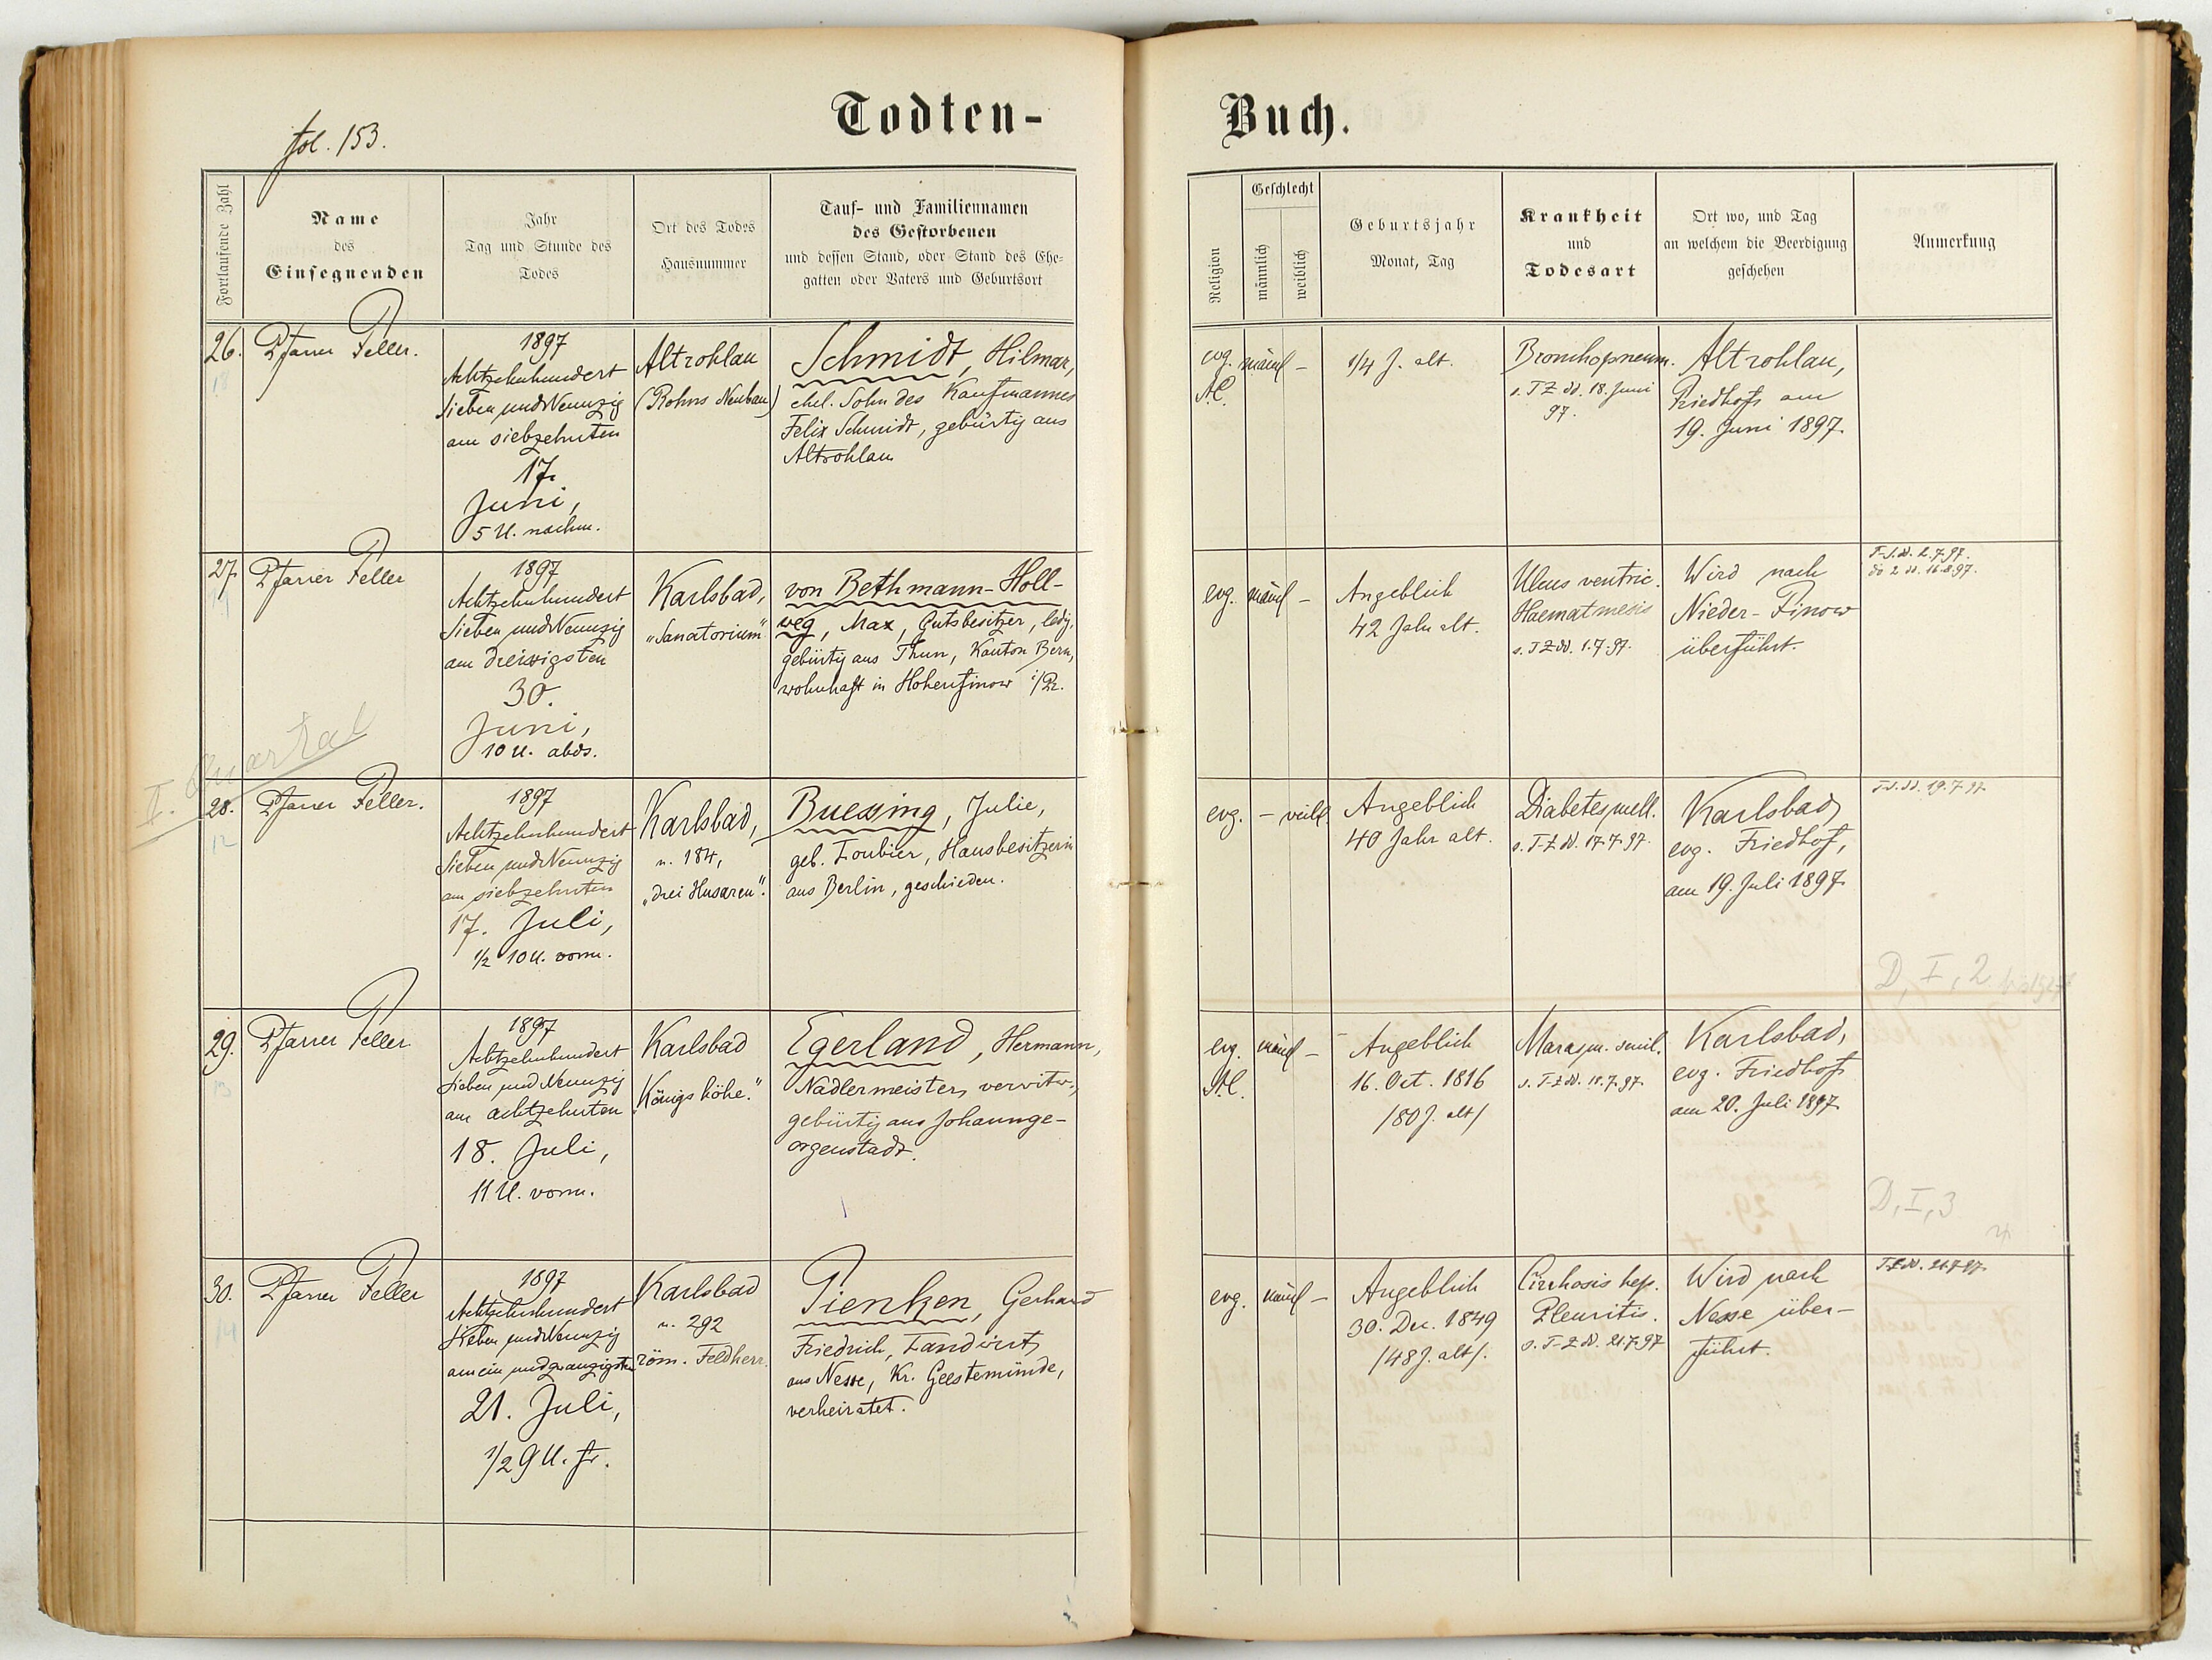 fol. 153.
Todten-
Buch.
Fortlaufende Zahl
Name
des
Einsegnenden
Jahr
Tag und Stunde des
Todes
Ort des Todes
Hausnummer
Tauf- und Familiennamen
des Gestorbenen
und dessen Stand, oder Stand des Ehe-
gatten oder Vaters und Geburtsort
Religion
Geschlecht
männlich
weiblich
Geburtsjahr
Monat, Tag
Krankheit
und
Todesart
Ort wo, und Tag
an welchem die Beerdigung
geschehen
Anmerkung
26.
Pfarrer Feller.
1897
Achtzehnhundert
Sieben und Neunzig
am siebzehnten
17.
Juni,
5 U. nachm.
Altrohlau
(Rohns Neubau)
Schmidt, Hilmar,
ehel. Sohn des Kaufmannes
Felix Schmidt, gebürtig aus
Altrohlau
evg.
A.C.
männl –
1/4 J. alt.
Bronchopneum.
s. TZ dd. 18. Juni
97.
Altrohlau,
Friedhof am
19. Juni 1897.
27.
Pfarrer Feller
1897
Achtzehnhundert
Sieben und Neunzig
am dreissigsten
30.
Juni,
10 U. abds.
Karlsbad,
"Sanatorium"
von Bethmann-Holl-
weg, Max, Gutsbesitzer, ledig,
gebürtig aus Thun, Kanton Bern,
wohnhaft in Hohenfinow i/Pr.
evg. männl –
Angeblich
42 Jahr alt.
Ulcus ventric.
Haematmesis
s. TZ dd. 1.7.97.
Wird nach
Nieder-Finow
überführt.
T-S. dd. 2.7.97.
do 2 dd. 16.8.97.
II. Quartal
28.
12
Pfarrer Feller.
1897
Achtzehnhundert
Sieben und Neunzig
am siebzehnten
17. Juli,
1/2 10 U. vorm.
Karlsbad,
n. 184,
"drei Husaren".
Buessing, Julie,
geb. Loubier, Hausbesitzerin
aus Berlin, geschieden.
evg. – weibl.
Angeblich
40 Jahr alt.
Diabetes mell.
s. T-Z dd. 17.7.97.
Karlsbad,
evg. Friedhof,
am 19. Juli 1897.
T-S. dd. 19.7.97.
D, I, 2
29.
13
Pfarrer Feller
1897
Achtzehnhundert
Sieben und Neunzig
am achtzehnten
18. Juli,
11 U. vorm.
Karlsbad
"Königshöhe."
Egerland, Hermann,
Nadlermeister, verwitw.,
gebürtig aus Johannge-
orgenstadt.
evg.
A.C.
männl –
Angeblich
16. Oct. 1816
/80 J. alt/
Marasm. senil.
s. T-Z dd. 18.7.97.
Karlsbad,
evg. Friedhof
am 20. Juli 1897.
D, I, 3
30.
14
Pfarrer Feller
1897
Achtzehnhundert
Sieben und Neunzig
am ein und zwanzigsten
21. Juli,
1/2 9 U. fr.
Karlsbad
n. 292
röm. Feldherr.
Tienken, Gerhard
Friedrich, Landwirt
aus Nesse, Kr. Geestemünde,
verheiratet.
evg. männl –
Angeblich
30. Dec. 1849
/48 J. alt/.
Cirrhosis hep.
Pleuritis.
s. T-Z dd. 21.7.97
Wird nach
Nesse über-
führt.
T-Z dd. 21.7.97.